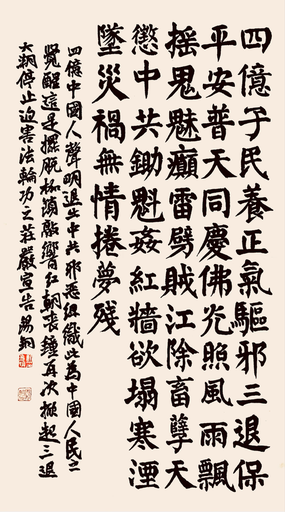 四億子民養正氣驅邪三退保
平安普天同慶佛光照風雨飄
搖鬼魅癲雷劈賊江除畜孽天
懲中共鋤魁姦紅牆欲塌寒湮
墜災禍無情捲夢殘
四億中國人聲明退出中共邪惡組織此為中國人民之
覺醒這是擺脫枷鎖敲響紅朝喪鐘再次掀起三退
大潮停止迫害法輪功之莊嚴宣告